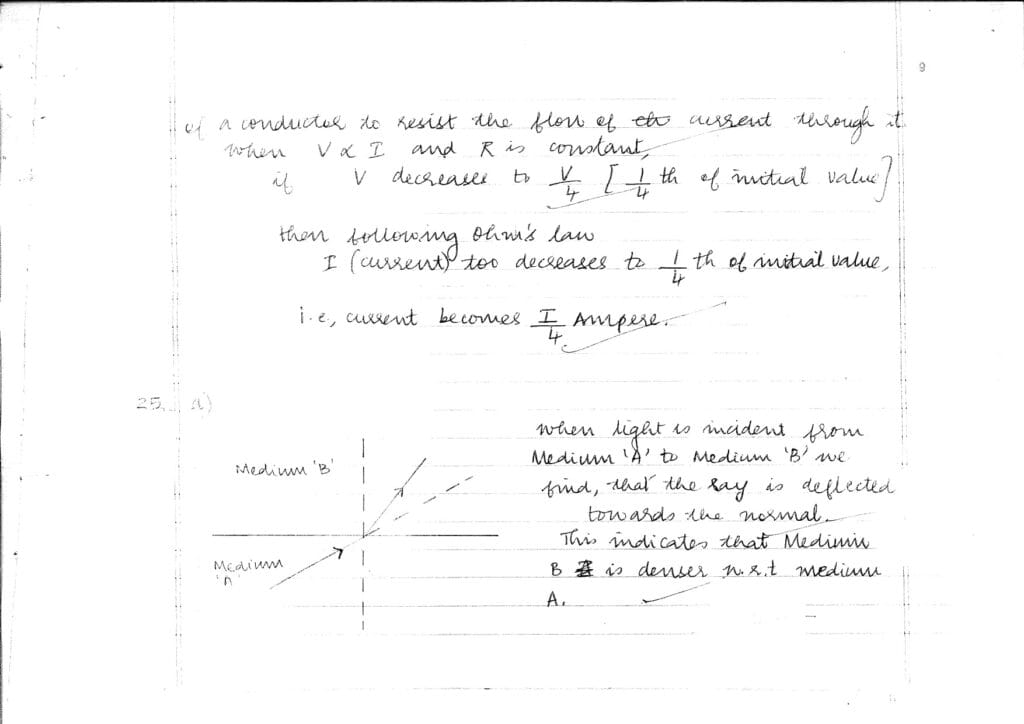 9
of a conductor to resist the flow of current through it
when V ∝ I and R is constant,
if V decreases to V/4 [1/4 th of initial value]
then following Ohm's law
I (current) too decreases to 1/4 th of initial value,
i.e., current becomes I/4 Ampere.
25. a)
Medium 'B'
Medium
'A'
when light is incident from
Medium 'A' to Medium 'B' we
find, that the ray is deflected
towards the normal.
This indicates that Medium
B is denser w.r.t medium
A.